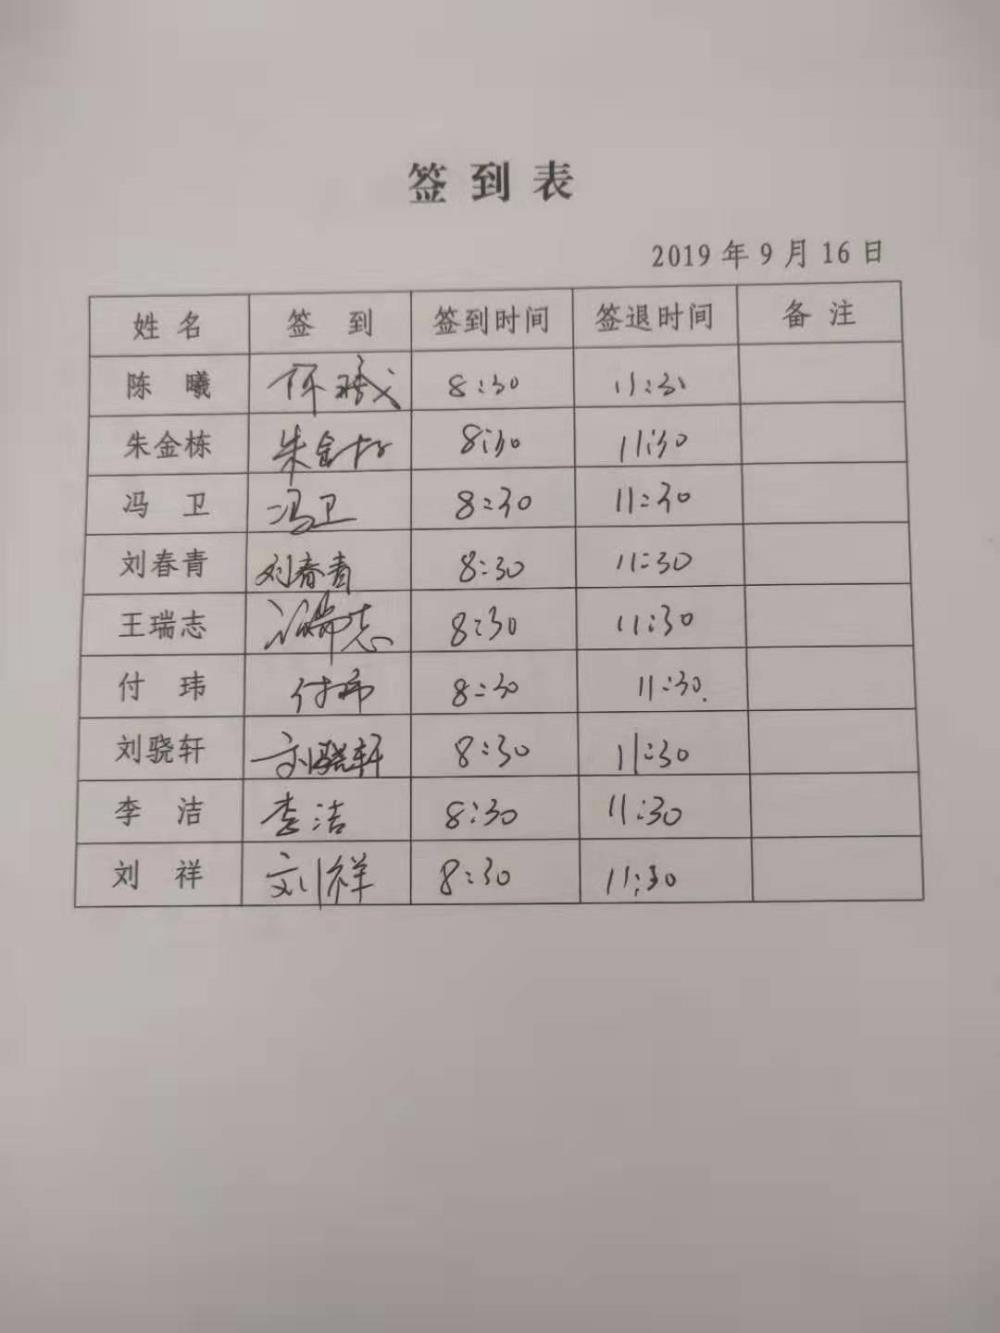 签到表
2019年9月16日
姓名 签到 签到时间 签退时间 备注
陈曦 陈曦 8:30 11:30
朱金栋 朱金栋 8:30 11:30
冯卫 冯卫 8:30 11:30
刘春青 刘春青 8:30 11:30
王瑞志 王瑞志 8:30 11:30
付玮 付玮 8:30 11:30
刘骁轩 刘骁轩 8:30 11:30
李洁 李洁 8:30 11:30
刘祥 刘祥 8:30 11:30